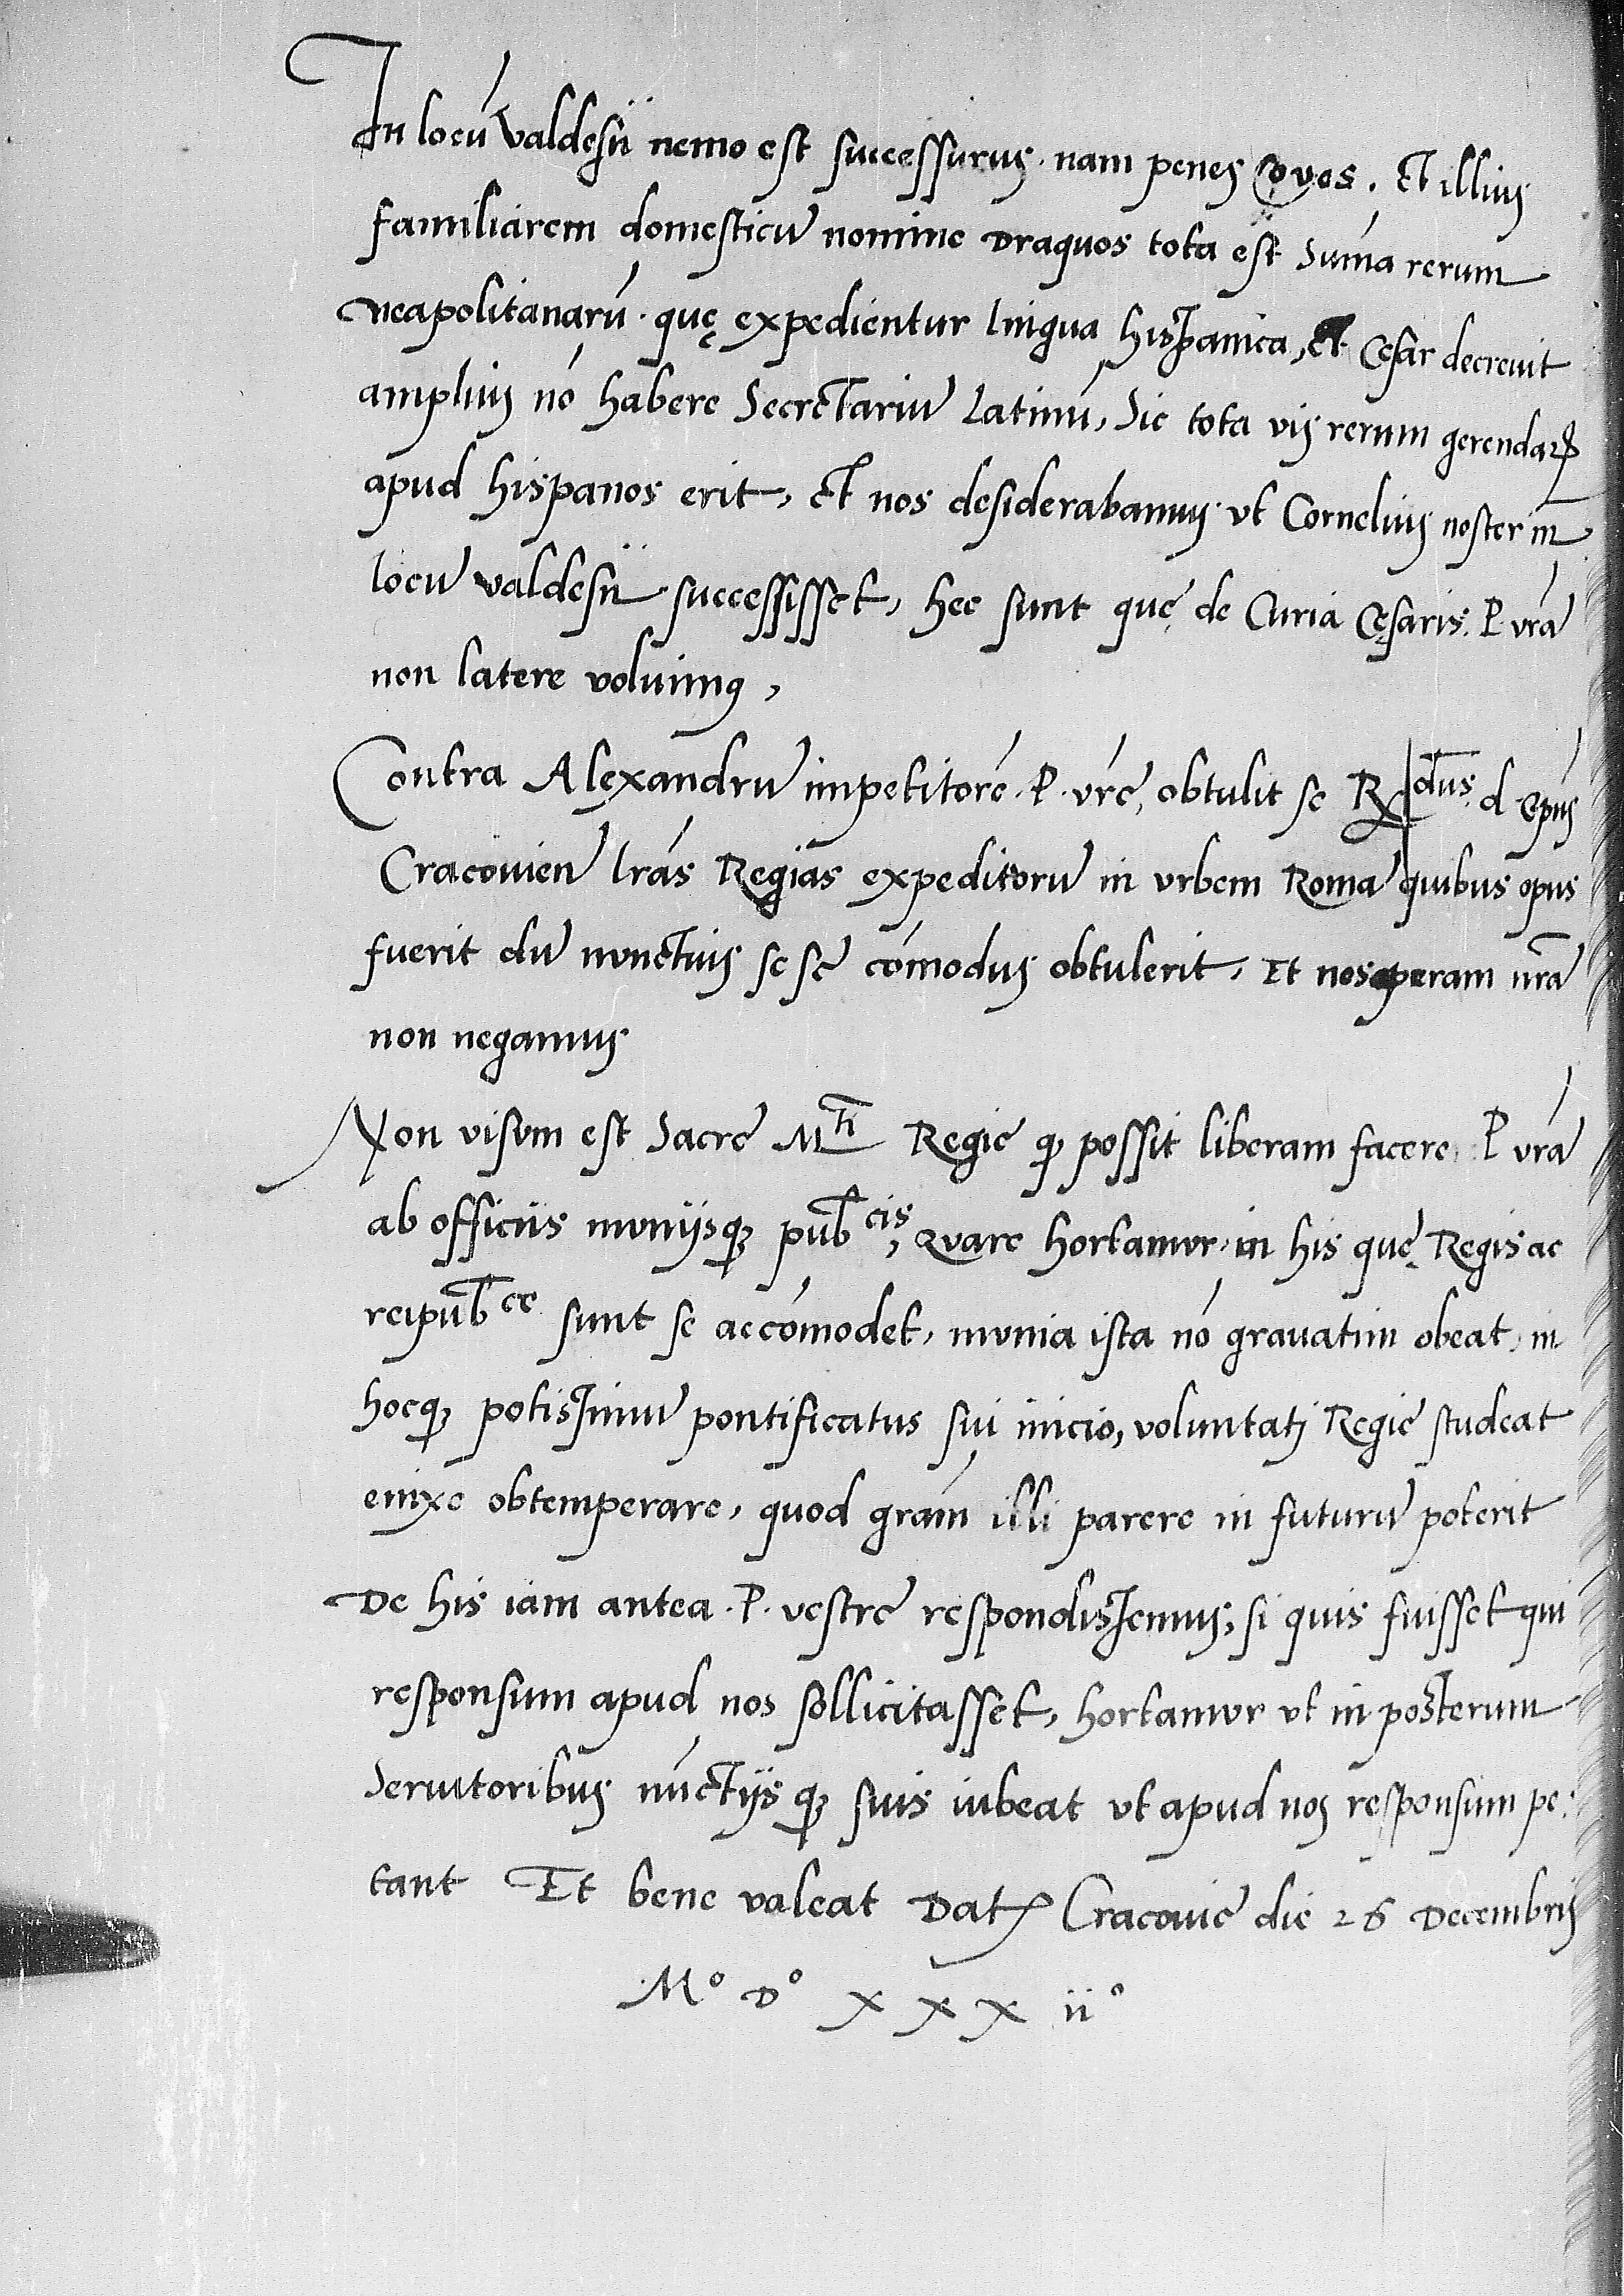 In locū Valdesii nemo est successurus. nam penes Covos. Et illius
familiarem domesticū nomine Draquos tota est Sūma rerum
Neapolitanarū. quę expedientur lingua Hispanica, Et Cęsar decreuit
amplius nō habere Secretariū Latinū, Sic tota vis rerum gerendaꝝ
apud hispanos erit, Et nos desiderabamus vt Cornelius noster in
locū valdesii successisset, hec sunt quę de Curia Cęsaris. P vrā
non latere voluimꝰ,
Contra Alexandrū impetitorē. P. vrē, obtulit se Rdus. d Epūs
Cracouien̄ lrās Regias expeditorū in vrbem Romā quibus opus
fuerit dū nunctius se se cōmodus obtulerit, Et nos operam nrā
non negamus
Non visum est Sacrę Mti Regię qꝫ possit liberam facere P vrā
ab officiis muniisqꝫ pubcis, Quare hortamur. in his quę Regis ac
reipubce sunt se accōmodet, munia ista nō grauatim obeat, in
hocqꝫ potissimū pontificatus sui inicio, voluntati Regię studeat
enixe obtemperare, quod grām illi parere in futurū poterit
De his iam antea. P. vestrę respondissemus, si quis fuisset qui
responsum apud nos sollicitasset, hortamur vt in posterum
Seruitoribus nūctiis qꝫ suis iubeat vt apud nos responsum pe:
tant Et bene valeat Datꝫ Cracouię die 26 Decembris
M° D° x x x ii°